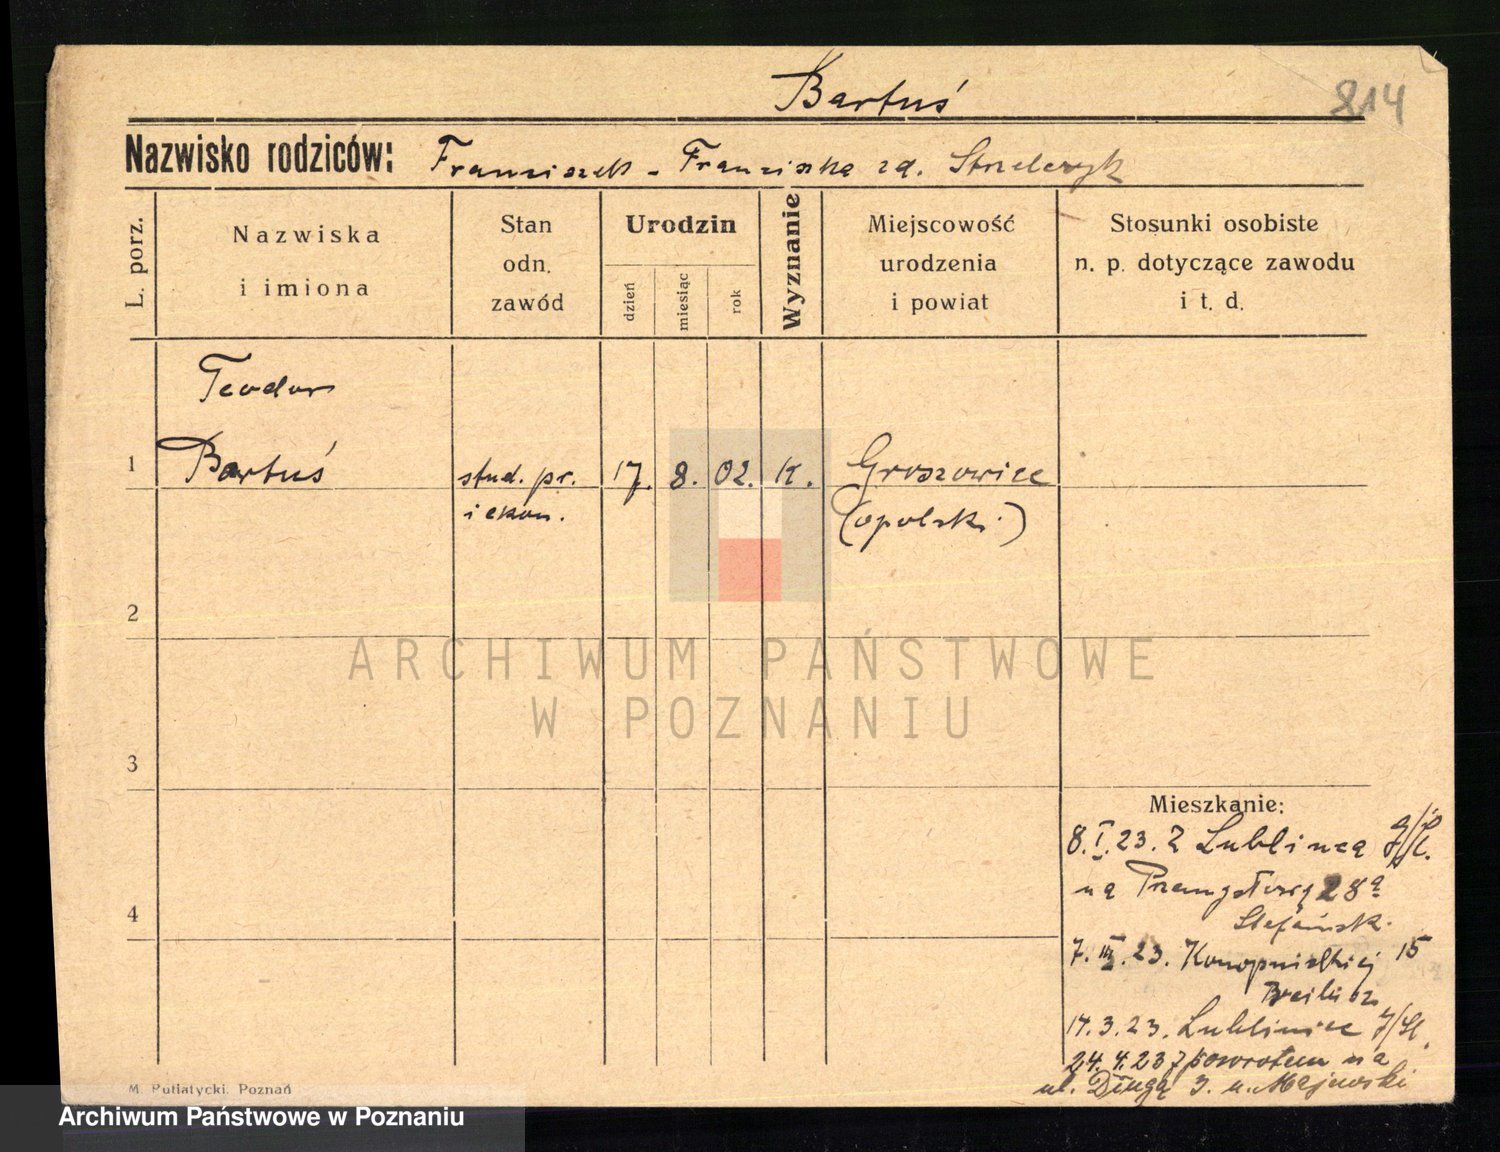 Bartuś
814
Nazwisko rodziców: Franciszek - Franciszka zd. Strzelczyk
L. porz.
Nazwiska
i imiona
Stan
odn.
zawód
Urodzin
dzień
miesiąc
rok
Wyznanie
Miejscowość
urodzenia
i powiat
Stosunki osobiste
n. p. dotyczące zawodu
i t. d.
Teodor
1 Bartuś stud. pr. 17. 8. 02. K. Groszowice
i ekon. (opolski)
2
3
4
Mieszkanie:
8.I.23. Z Lublińca G/Śl.
na Przemysłową 28a
Stefańsk.
7.III.23. Konopnickiej 15
17.3.23. Lubliniec G/Śl.
24.4.23 z powrotem na
ul. Długą 3. u. Majewski
M. Putiatycki, Poznań
ARCHIWUM PAŃSTWOWE
W POZNANIU
Archiwum Państwowe w Poznaniu